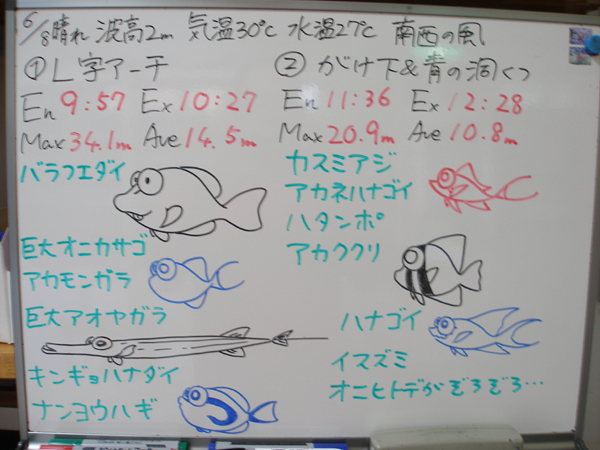 6/8 晴れ 波高2m 気温30℃ 水温27℃ 南西の風
① L字アーチ
En 9:57 Ex 10:27
Max 34.1m Ave 14.5m
バラフエダイ
巨大オニカサゴ
アカモンガラ
巨大アオヤガラ
キンギョハナダイ
ナンヨウハギ
② がけ下&青の洞くつ
En 11:36 Ex 12:28
Max 20.9m Ave 10.8m
カスミアジ
アカネハナゴイ
ハタンポ
アカククリ
ハナゴイ
イスズミ
オニヒトデがぞろぞろ…